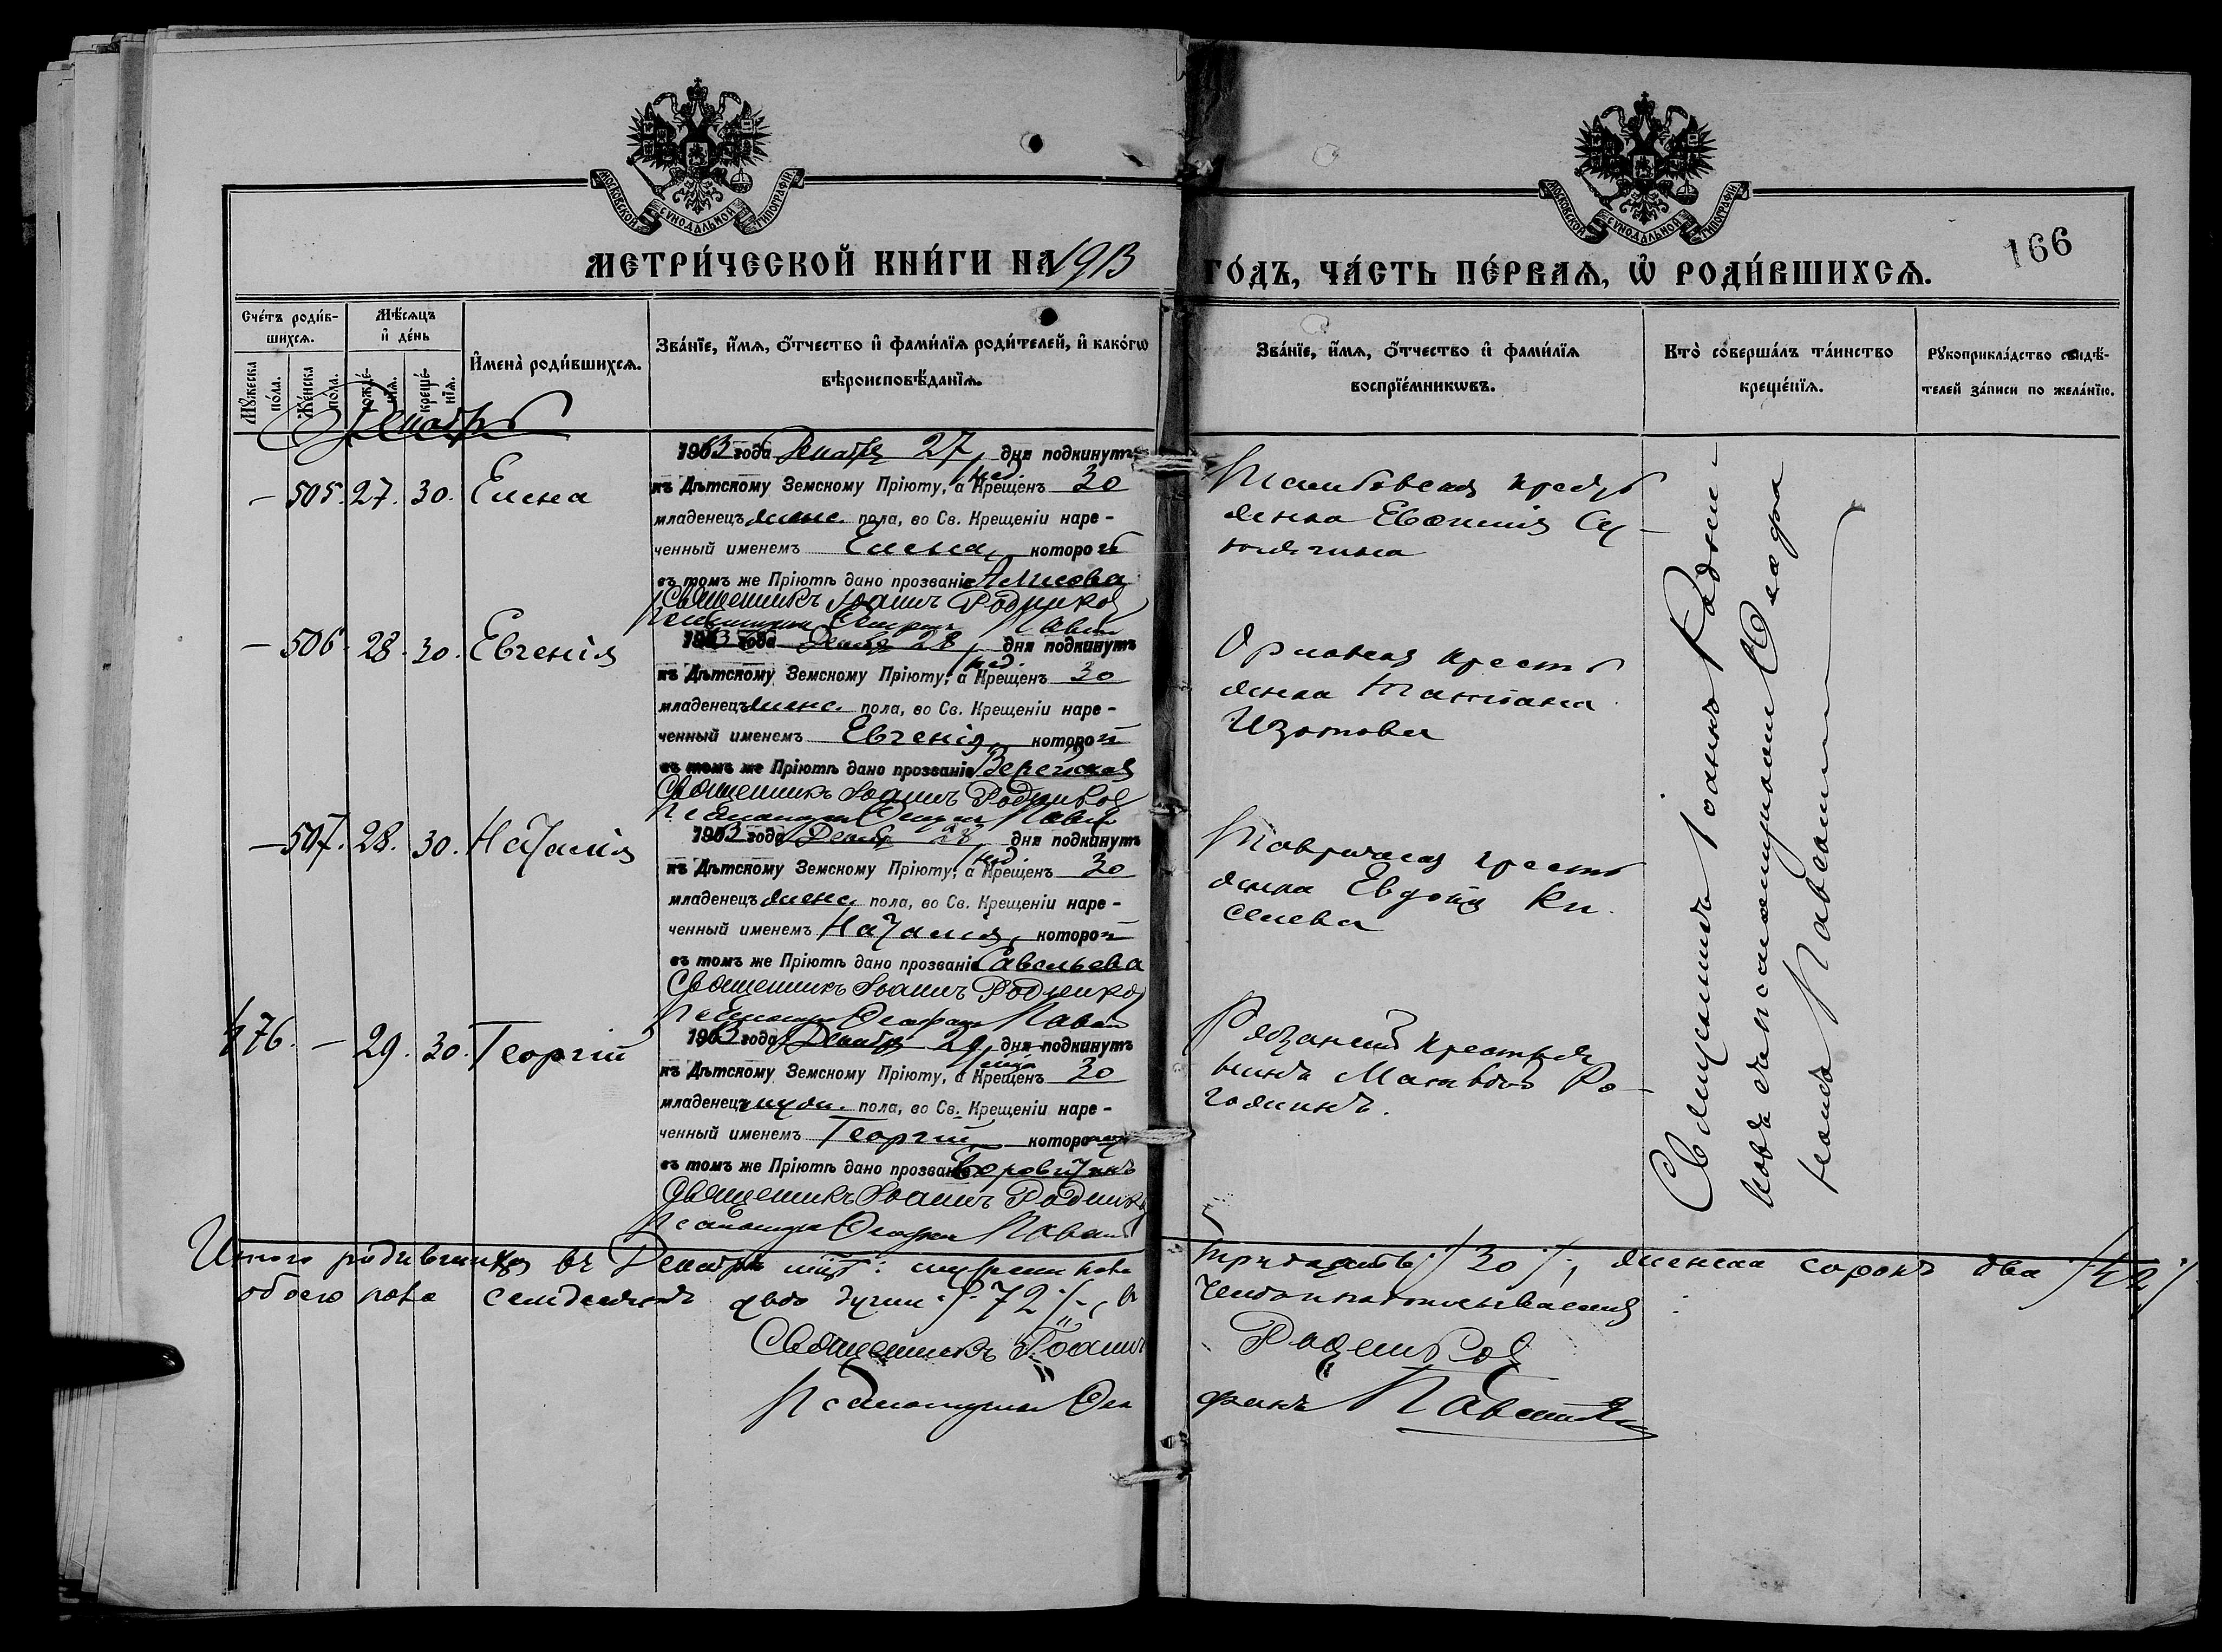 МОСКОВСКОЙ СѴНОДАЛЬНОЙ ТИПОГРАФІИ
МОСКОВСКОЙ СѴНОДАЛЬНОЙ ТИПОГРАФІИ
МЕТРИ́ЧЕСКОЙ КНИ́ГИ НА 1913
ГО́ДЪ, ЧА́СТЬ ПЕ́РВАѦ, Ѡ҆ РОДИ́ВШИХСѦ.
166
Сче́тъ роди́вшихсѧ.
Мꙋ́жеска по́ла.
Же́нска по́ла.
Мѣ́сѧцъ и҆ де́нь
рожде́нїѧ.
креще́нїѧ.
И҆мена̀ роди́вшихсѧ.
Зва́нїе, и҆́мѧ, ѻ҆́тчество и҆ фами́лїѧ роди́телей, и҆ како́гѡ
вѣроисповѣ́данїѧ.
Зва́нїе, и҆́мѧ, ѻ҆́тчество и҆ фами́лїѧ
воспрїе́мникѡвъ.
Кто̀ соверша́лъ та́инство
креще́нїѧ.
Рꙋкоприкла́дство свидѣ́-
телей за́писи по жела́нїю.
Декабрь
– 505. 27. 30. Елена
1913 года Декабря 27 дня подкинутъ
къ Дѣтскому Земскому Пріюту, а Крещенъ 30
младенецъ женс. пола, во Св. Крещеніи наре-
ченный именемъ Елена, которой
въ томъ же Пріютѣ дано прозваніе
Священникъ Іоаннъ Родниковъ
Тамбовская кресть
янка Евфимія Су-
– 506. 28. 30. Евгенія
1913 года Декабря 28 дня подкинутъ
къ Дѣтскому Земскому Пріюту, а Крещенъ 30
младенецъ женс. пола, во Св. Крещеніи наре-
ченный именемъ Евгенія, которой
въ томъ же Пріютѣ дано прозваніе Верейская
Священникъ Іоаннъ Родниковъ
Орловская кресть
янка Татіана
Изотова
– 507. 28. 30. Наталія
1913 года Декабр 28 дня подкинутъ
къ Дѣтскому Земскому Пріюту, а Крещенъ 30
младенецъ женс. пола, во Св. Крещеніи наре-
ченный именемъ Наталія, которой
въ томъ же Пріютѣ дано прозваніе Савельева
Священникъ Іоаннъ Родниковъ
Таврическая кресть
янка Евдокія Ки-
селева
476. – 29. 30. Георгій
1913 года Декабря 29 дня подкинутъ
къ Дѣтскому Земскому Пріюту, а Крещенъ 30
младенецъ муж. пола, во Св. Крещеніи наре-
ченный именемъ Георгій, которому
въ томъ же Пріютѣ дано прозваніе
Священникъ Іоаннъ Родниковъ
Рязанскій крестья
нинъ
Священникъ Іоаннъ Родни-
ковъ съ псаломщикомъ
Итого родившихся въ Декабрѣ мцѣ: мужеска пола
тридцать /30/, женска сорокъ два /42/
обоего пола семьдесятъ двѣ души /72/, въ
чемъ и подписываемся:
Священникъ Іоаннъ Родниковъ